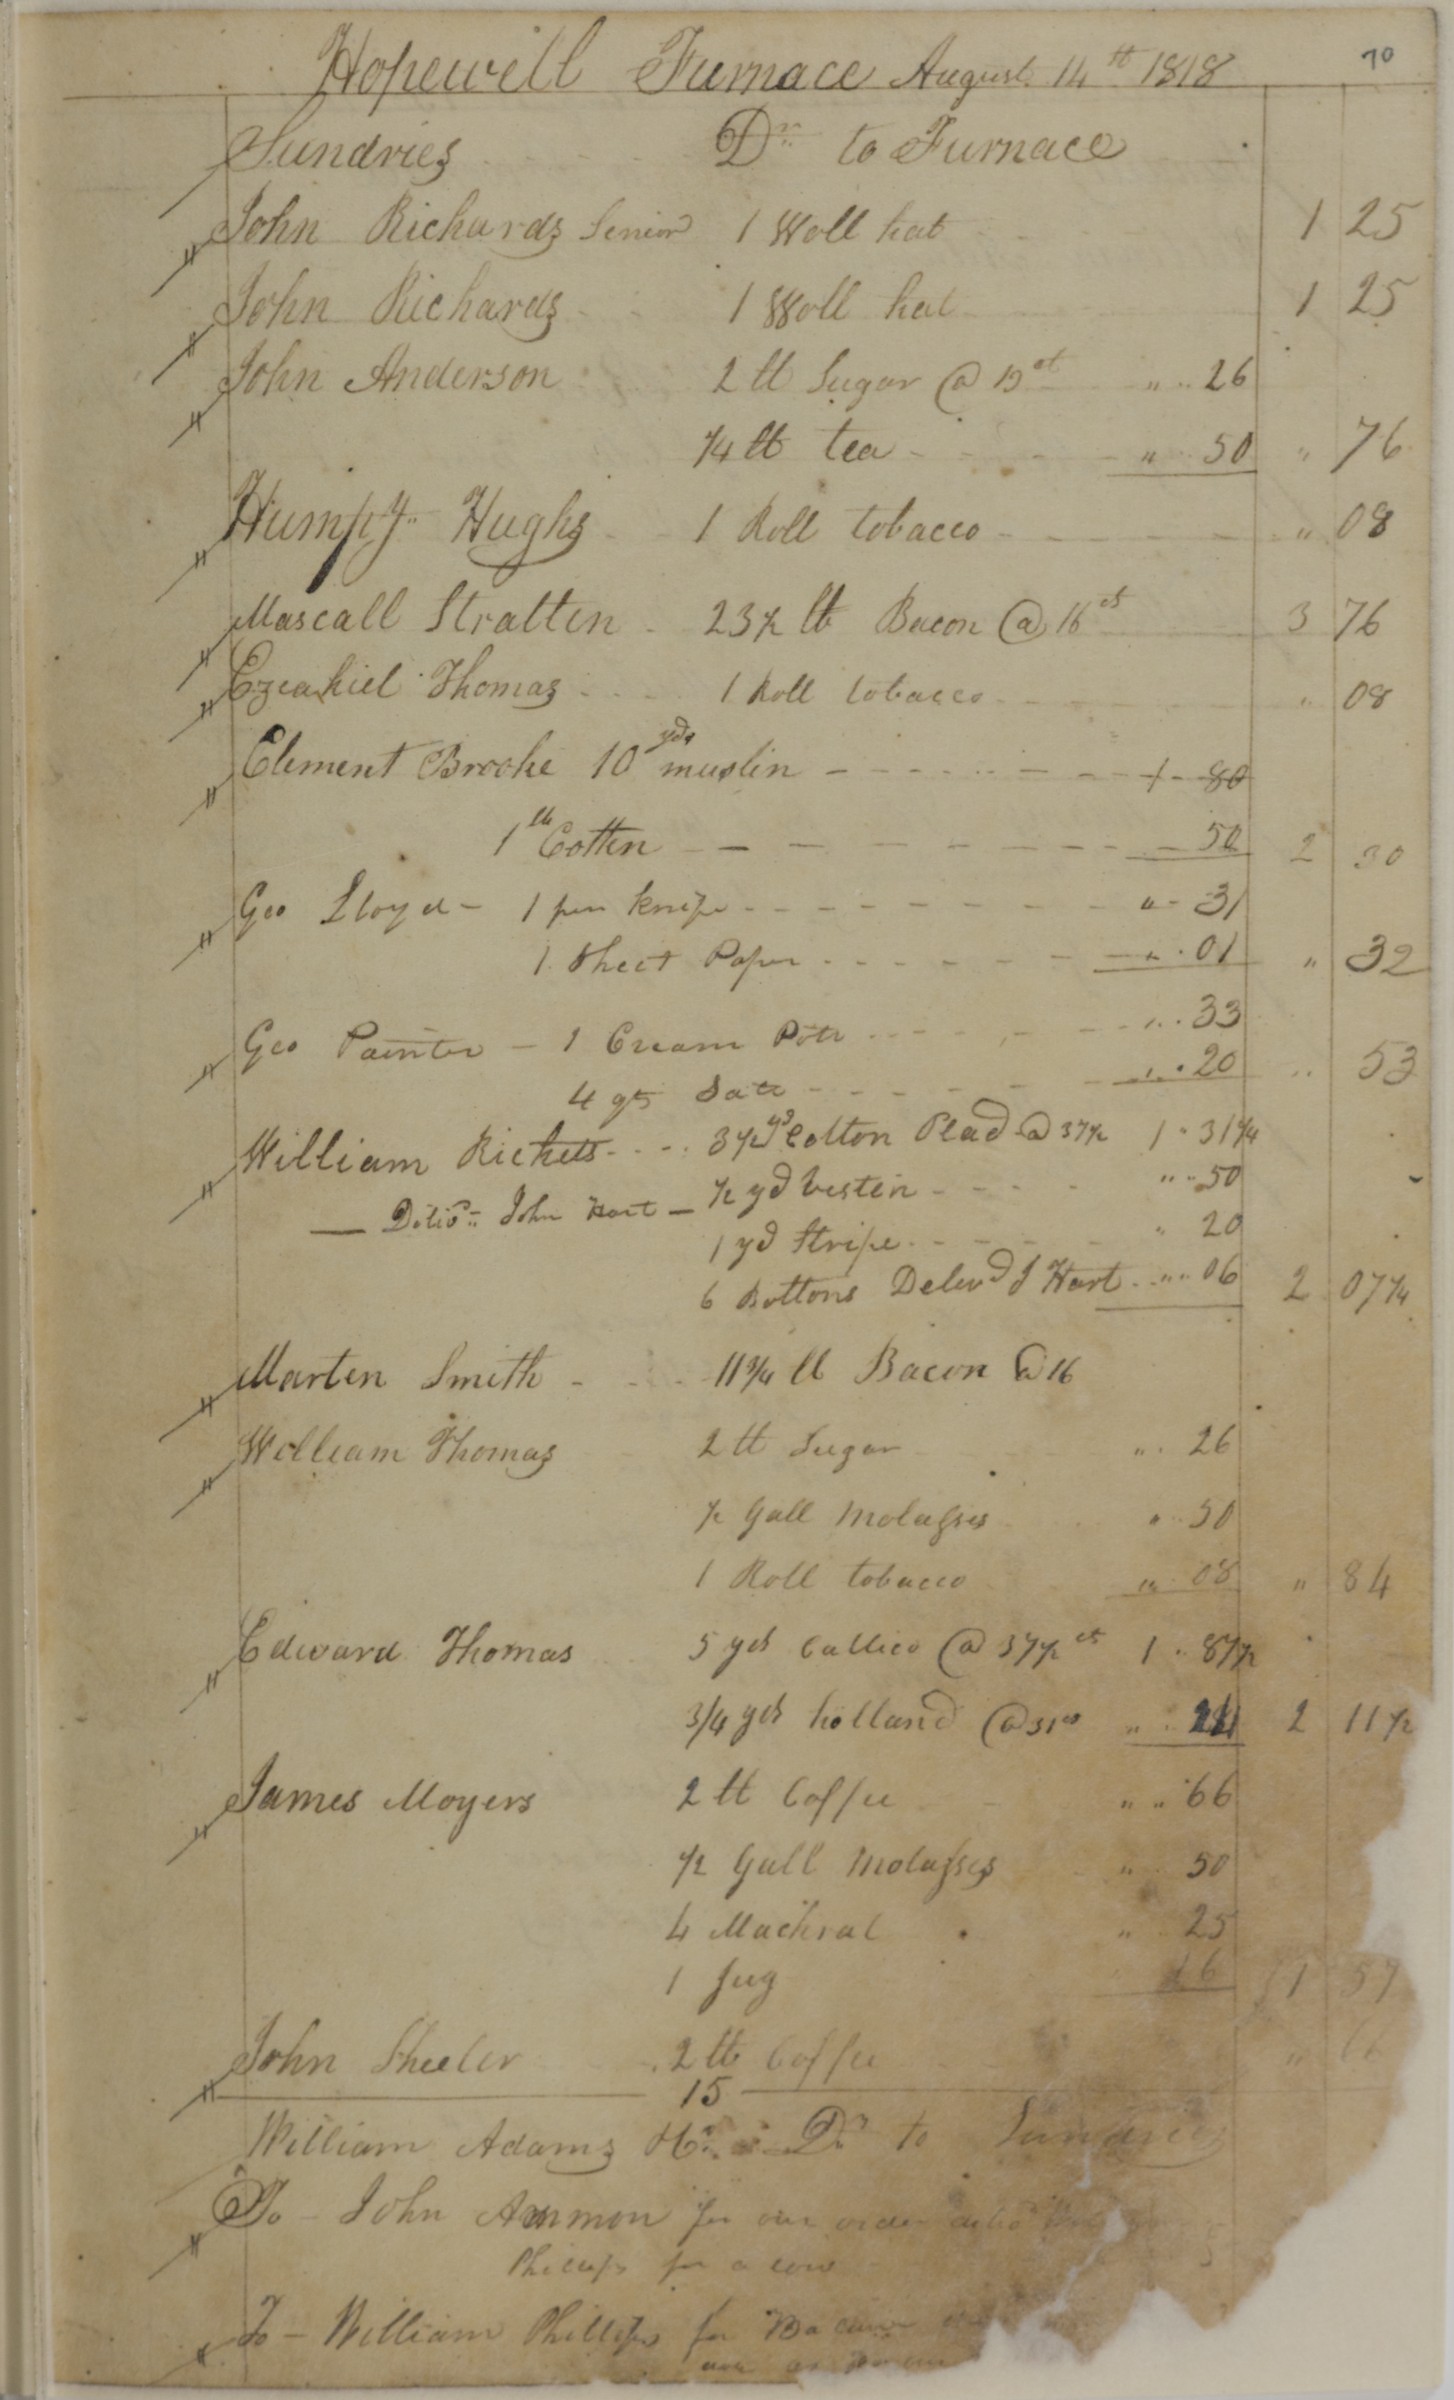 70
Hopewell Furnace August 14th 1818
Sundries Dr to Furnace
John Richards Senior 1 Woll hat 1 25
John Richards 1 Woll hat 1 25
John Anderson 2 lb Sugar @ 13 ct " 26
1/4 lb tea " 50 " 76
Humpy Hughs 1 Roll tobacco " 08
Mascall Stratten 23 1/2 lb Bacon @ 16 cts 3 76
Ezeakiel Thomas 1 Roll tobacco " 08
Clement Brooke 10 yds muslin 1 80
1 lb Cotten 50 2 30
Geo Lloyd - 1 pen knife " 31
1 Sheet Paper " 01 " 32
Geo Painter - 1 Cream Pott " 33
4 qts Salt " 20 " 53
William Rickets 3 1/2 yd Cotton Plad @ 37 1/2 1 31 1/4
— Deliv'd John Hart — 1/2 yd Vesten " 50
1 yd Stripe " 20
6 Bottons Delevd J Hart " 06 2 07 1/4
Marten Smith 11 3/4 lb Bacon @ 16
William Thomas 2 lb Sugar " 26
1/2 Gall Molasses " 50
1 Roll tobacco " 08 " 84
Edward Thomas 5 yds Callico @ 37 1/2 cts 1 87 1/2
3/4 yds holland @ 31 cts " 24 2 11 1/2
James Moyers 2 lb Coffee " 66
1/2 Gall Molasses " 50
4 Mackral " 25
1 Jug 16 1 57
John Sheeler 2 lb Coffee "
15
William Adams Hr. Dr to Sundries
To - John Ammon for our order
Phillips for a cow
To - William Phillips for